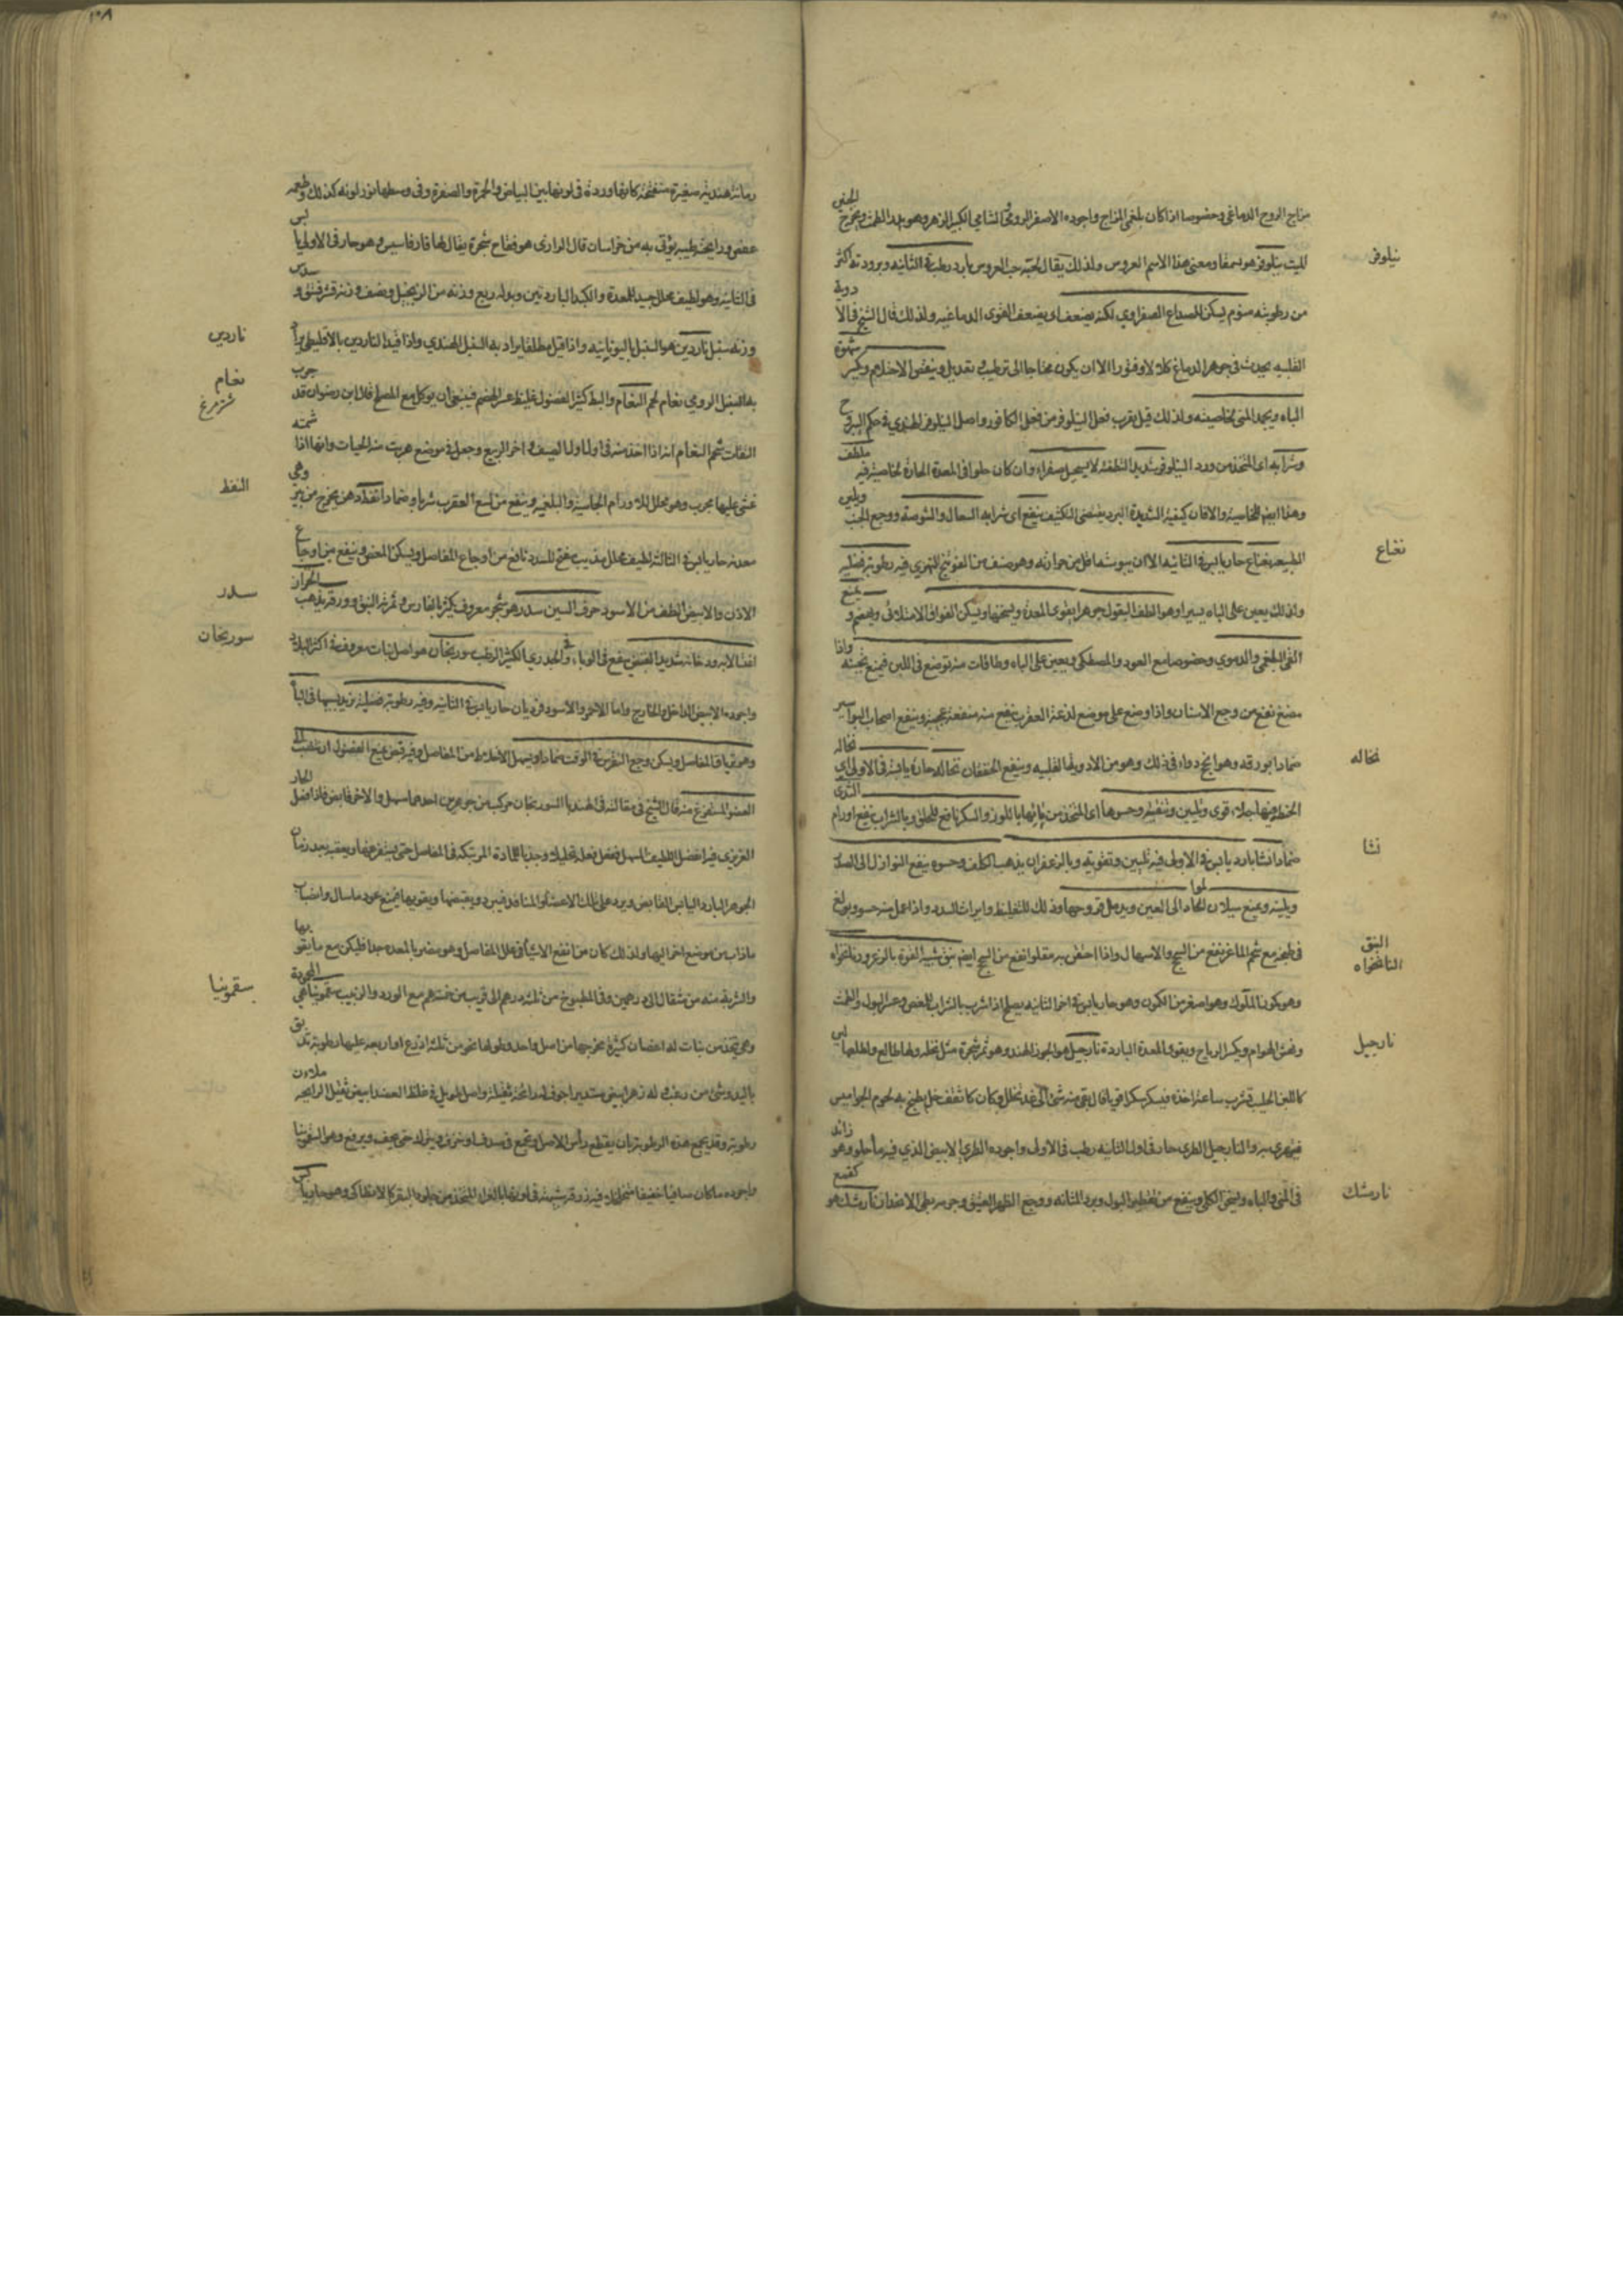 مزاج الروح الدماغى وخصوصا اذا كان بلغمى المزاج واجوده الاصفر الرومى والشامى الكبير الزهر وهو يدر الطمث ويخرج الجنين
الميت نيلوفر هو سمفا ومعنى هذا الاسم العروس ولذلك يقال لحبه حب العروس بارد رطب فى الثانيه وبرودته اكثر
من رطوبته منوم يسكن الصداع الصفراوي لكنه يضعف اى يضعف القوى الدماغيه ولذلك قال الشيخ فى الادوية
القلبيه يحدث فى جوهر الدماغ كلالا وفتورا الا ان يكون محتاجا الى ترطيب وتعديل وينقص الاحتلام ويكسر شهوة
الباه ويجمد المنى بخاصيته ولذلك قيل يقرب فعل النيلوفر من فعل الكافور واصل النيلوفر الهندي فى حكم اليبروح
وشرابه اى المتخذ من ورد النيلوفر شديد التطفئه لا يستحيل صفراء وان كان حلوا فى المعدة الحارة لخاصية فيه
وهذا ايضا للخاصيه والا فان كيفيه الشديدة البرد يقتضى التكثيف ينفع اى شرابه السعال والشوصة ووجع الجنب ويلين
الطبيعه نعناع حار يابس فى الثانيه الا ان يبوسته اقل من حرارته وهو صنف من الفوتنج النهري فيه رطوبة فضليه
ولذلك يعين على الباه يسيرا وهو الطف البقول جوهرا يقوى المعدة ويسخنها ويسكن الفواق الامتلائى ويهضم ويمنع
القى البلغمى والدموي وخصوصا مع العود والمصطكى ويعين على الباه وطاقات منه توضع فى اللبن فيمنع تجبنه واذا
مضغ نفع من وجع الاسنان واذا وضع على موضع لدغة العقرب ينفع منه منفعة عجيبة وينفع اصحاب البواسير
ضمادا بورقه وهو انجح دواء فى ذلك وهو من الادوية القلبيه وينفع الخفقان نخاله حارة يابسة فى الاولى اى نخاله
الحنطه فيها جلاء قوى وتليين وتنقية وحسوها اى المتخذ من مائها بالموز والسكر نافع للحلق وبالشراب ينفع اورام الثدى
ضمادا نشا بارد يابس فى الاولى فيه تليين وتقويه وبالزعفران يذهب الكلف وحسوه ينفع النوازل الى الصدر
ويلينه ويمنع سيلان المواد الى العين ويدمل قروحها وذلك للتغليظ وايراث السدد واذا عمل منه حسو وبولغ
فى طبخه مع شحم الماعز نفع من السحج والاسهال واذا احتقن به مقلوا نفع من السحج ايضا نبق شبيه القوة بالزعرور نانخواه
وهو كمون الملوك وهو اصغر من الكمون وهو حار يابس فى اخر الثانيه يصلح اذا شرب بالشراب للمغص وعسر البول والطمث
ونهش الهوام ويكسر الرياح ويقوى المعدة الباردة نارجيل هو الجوز الهند وهو ثمر شجرة مثل نخله ولها طالع ولطلعها لبن
كاللبن الحليب يشرب ساعة اخذه فيسكر سكرا قويا فان بقى منه شئ الى غد تخلل وكان كاثقف خل يطبخ به لحوم الجواميس
فيهري به والنارجيل الطرى حار فى اول الثانيه رطب فى الاولى واجوده الطرى الابيض الذي فيه ماء حلو وهو زائد
فى المنى والباه ويسخن الكلى وينفع من تقطير البول وبرد المثانه ووجع الظهر العتيق وجرمه بطى الانهضام نارمشك هو كقمع
نيلوفر
نعناع
نخاله
نشا
النبق
النانخواه
نارجيل
نارمشك
١٥٨
رمانة هندية صغيرة متفتحة كانها وردة فى لونها بين البياض والحمرة والصفرة وفى وسطها نور لونه كذلك وطعمه
عفص ورائحته طيبه يؤتى به من خراسان قال الرازى هو فقاح شجرة يقال لها فارفاسيس وهو حار فى الاولى يابس
فى الثانية وهو لطيف محلل جيد للمعدة والكبد الباردتين وبدله ربع وزنه من الزنجبيل ونصف وزنه قشر فستق وسدس
وزنه سنبل ناردين هو السنبل باليونانيه واذا قيل مطلقا يراد به السنبل الهندي واذا قيد الناردين بالاقليطى يراد
به السنبل الرومى نعام لحم النعام والبط كثير الفضول غليظ عسر الهضم فينبغى ان يوكل مع المصلح قال ابن رضوان قد جرب
الثقات شحم النعام انه اذا اخذ منه فى اوايل الصيف واخر الربيع وجعل فى موضع هربت منه الحيات وانها اذا شمته
غشى عليها مجرب وهو محلل للاورام الجاسية والبلغميه وينفع من لسع العقرب شربا وضمادا نفط دهن يخرج من بئر وهى
معدنه حار يابس فى الثالثة لطيف محلل مذيب مفتح للسدد نافع من اوجاع المفاصل ويسكن المغص وينفع من اوجاع
الاذن والابيض الطف من الاسود حرف السين سدر هو شجر معروف كثير بالفارس وثمرته النبق وورقه يذهب الحزاز
واجوده الابيض الداخل والخارج واما الاحمر والاسود فرديان حار يابس فى الثانية وفيه رطوبة فضلية يزيد بسببها فى الباه
وهو ترياق المفاصل ويسكن وجع النقرس فى الوقت ضمادا ويسهل الاخلاط من المفاصل وفيه قبض يمنع الفضول ان تنصب الى
العضو المستفرغ منه قال الشيخ فى مقالته فى الهندبا السورنجان مركب من جوهرين احدهما مسهل والاخر قابض فاذا فصل الحار
الغريزى فيه انفصل اللطيف المسهل ففعل فعله تحليلا وجذبا للمادة المرتبكة فى المفاصل حتى يستفرغها ويعقبه بعد زمان
الجوهر البارد اليابس القابض ويرد على تلك الاعضاء والمنافذ فيبرد ويقبضها ويقويها فيمنع عود ما سال وانصباب
ماذاب من موضع اخر اليها ولذلك كان من انفع الاشياء فى علل المفاصل وهو مضر بالمعده جدا فليكن مع ما يقويها
والشربة منه من مثقال الى درهمين وفى المطبوخ من ثلثة درهم الى قريب من خمسة دراهم مع الورد والزبيب سقمونيا هى المحمودة
وهى تتخذ من نبات له اغصان كثيرة مخرجها من اصل واحد وطولها نحو من ثلثة اذرع او اربعه عليها رطوبة تدبق
باليد وشئ من زغب وله زهر ابيض مستدير اجوف له رائحة ثقيلة واصل طويل فى غلظ العضد ابيض ثقيل الرايحه ملاءن
رطوبة وقد يجمع هذه الرطوبة بان يقطع رأس الاصل وتجمع فى صدف او خزف ويترك حتى يجف ويرفع وهو السقمونيا
ناردين
نعام
شترمرغ
النفط
سدر
سورنجان
سقمونيا